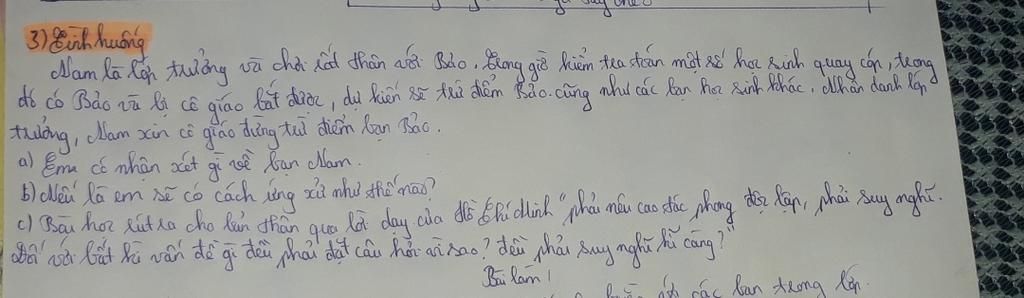 3) Tình huống
Nam là lớp trưởng và chơi rất thân với Bảo. Trong giờ kiểm tra toán một số học sinh quay cóp, trong
đó có Bảo và bị cô giáo bắt được, dự kiến sẽ trừ điểm Bảo cũng như các bạn học sinh khác. Nhân danh lớp
trưởng, Nam xin cô giáo đừng trừ điểm bạn Bảo.
a) Em có nhận xét gì về bạn Nam.
b) Nếu là em sẽ có cách ứng xử như thế nào?
c) Bài học rút ra cho bản thân qua lời dạy của Hồ Chí Minh "phải nêu cao tác phong độc lập, phải suy nghĩ.
Đối với bất kì vấn đề gì đều phải đặt câu hỏi vì sao? đều phải suy nghĩ kĩ càng?"
Bài làm!
các bạn trong lớp.